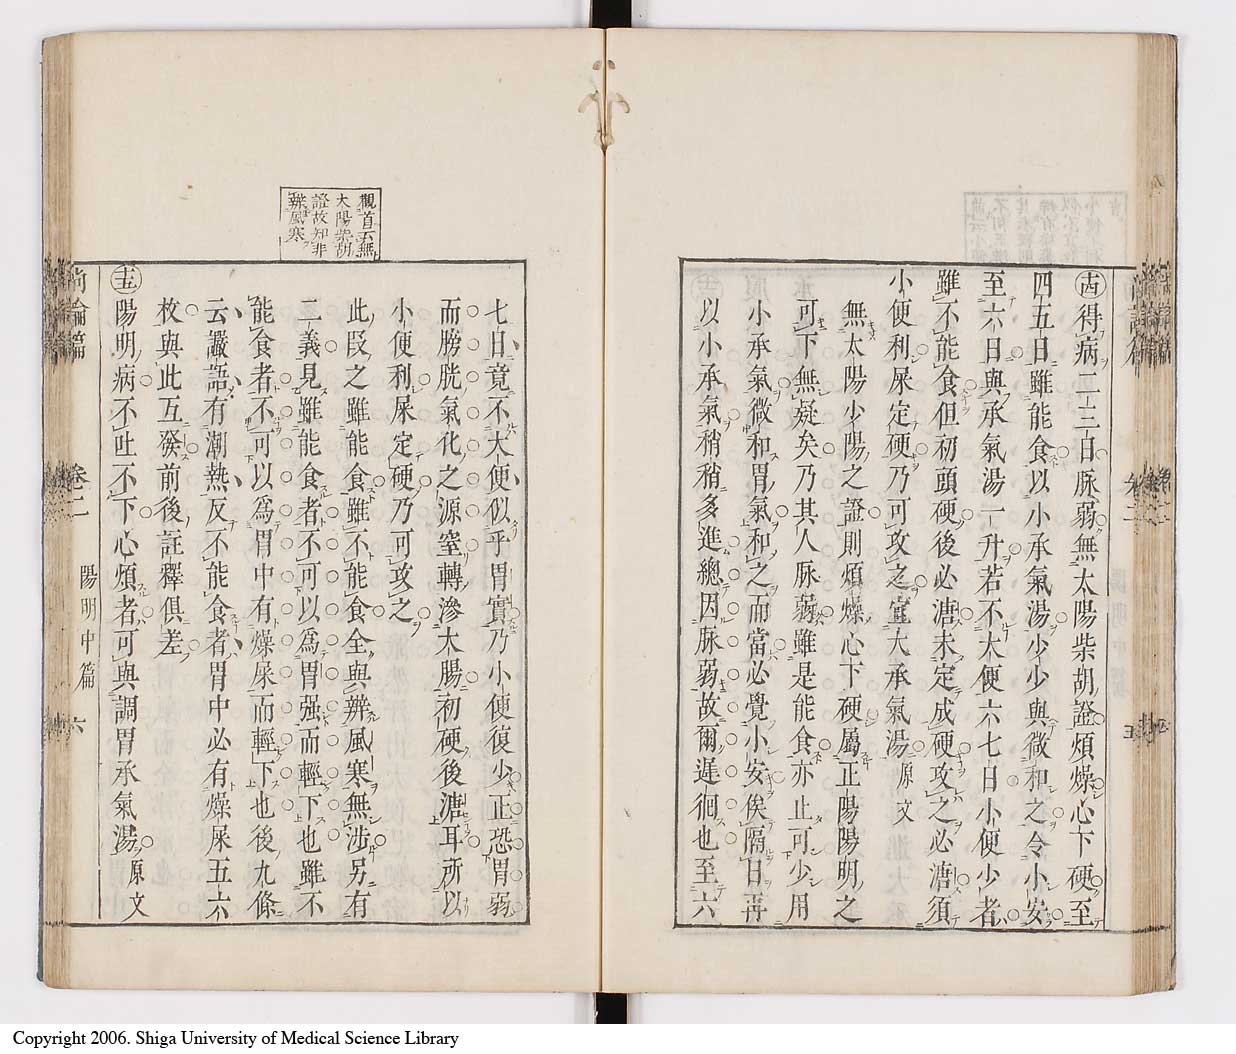 得病二三日脉弱無太陽柴胡證煩燥心下硬至
四五日雖能食以小承氣湯少少與微和之令小安
至六日與承氣湯一升若不大便六七日小便少者
雖不能食但初頭硬後必溏未定成硬攻之必溏須
小便利屎定硬乃可攻之宜大承氣湯原文
無太陽少陽之證則煩燥心下硬屬正陽陽明之
可下無疑矣乃其人脉弱雖是能食亦止可少用
小承氣微和胃氣和之而當必覺小安俟隔日再
以小承氣稍稍多進總因脉弱故爾遲徊也至六
七日竟不大便似乎胃實乃小便復少正恐胃弱
而膀胱氣化之源窒轉滲大腸初硬後溏耳所以
小便利屎定硬乃可攻之
此段之雖能食雖不能食全與辨風寒無涉另有
二義見雖能食者不可以爲胃强而輕下也雖不
能食者不可以爲胃中有燥屎而輕下也後九條
云讝語有潮熱反不能食者胃中必有燥屎五六
枚與此互發前後註釋俱差
陽明病不吐不下心煩者可與調胃承氣湯原文
觀首云無
太陽柴胡
證故知非
辨風寒
尚論篇
卷二
陽明中篇
六
Copyright 2006. Shiga University of Medical Science Library